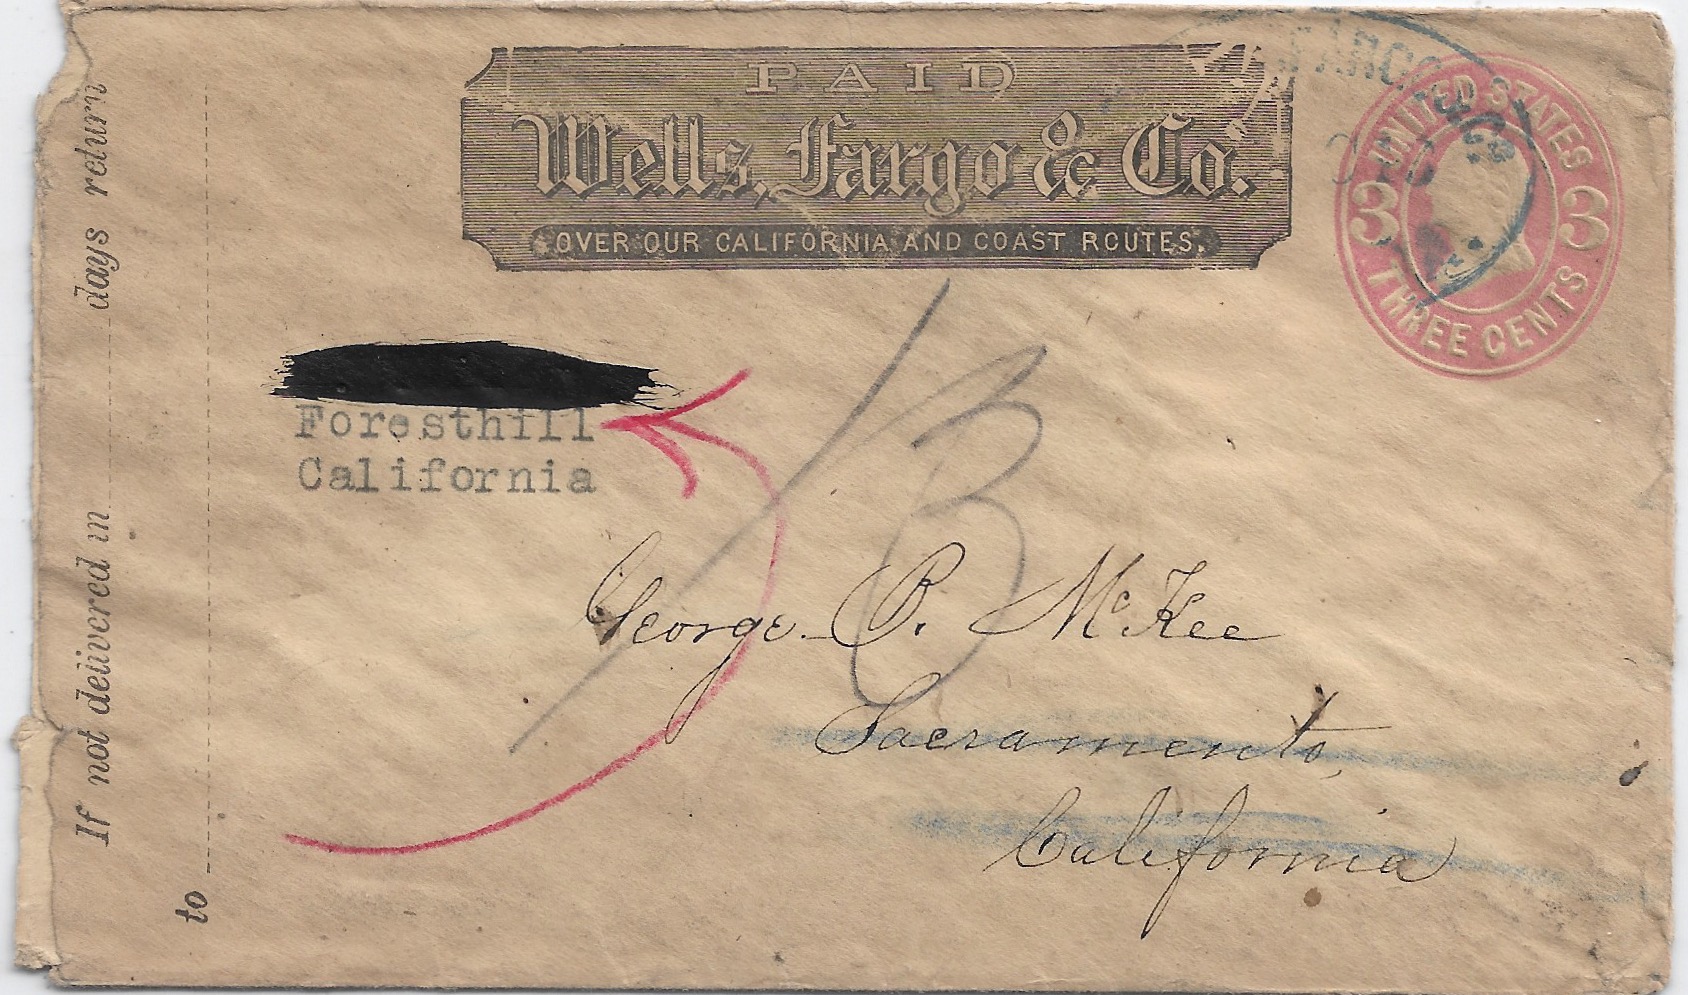 PAID
Wells, Fargo & Co.
OVER OUR CALIFORNIA AND COAST ROUTES.
UNITED STATES
3 3
THREE CENTS
FARGO & CO
If not delivered in days return
to
Foresthill
California
George P. McKee
Sacramento,
California